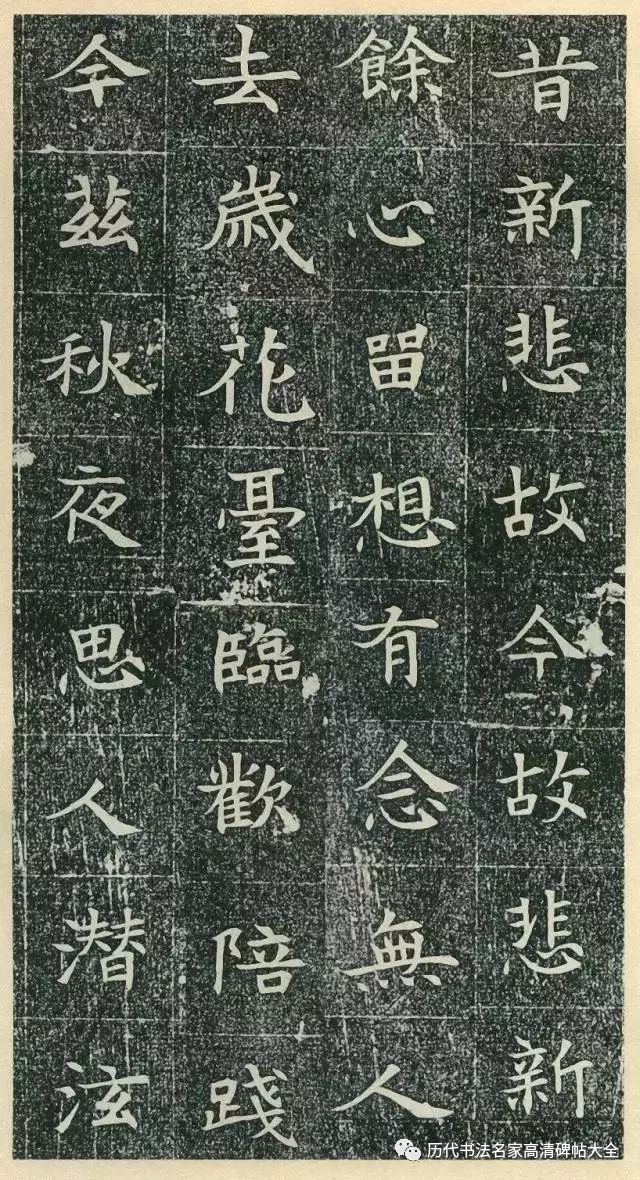 昔新悲故今故悲新
餘心留想有念無人
去歲花臺臨歡陪踐
今茲秋夜思人潛泫
历代书法名家高清碑帖大全